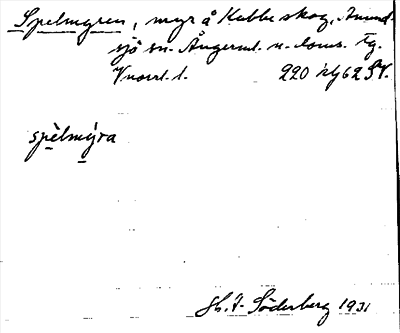 Spelmyren, myr å Kubbe skog, Anund-
sjö sn. Ångerml. n. doms. Fg.
Vnorrl. l. 220 62 SV.
spèlmýra
Th. F. Söderberg 1931